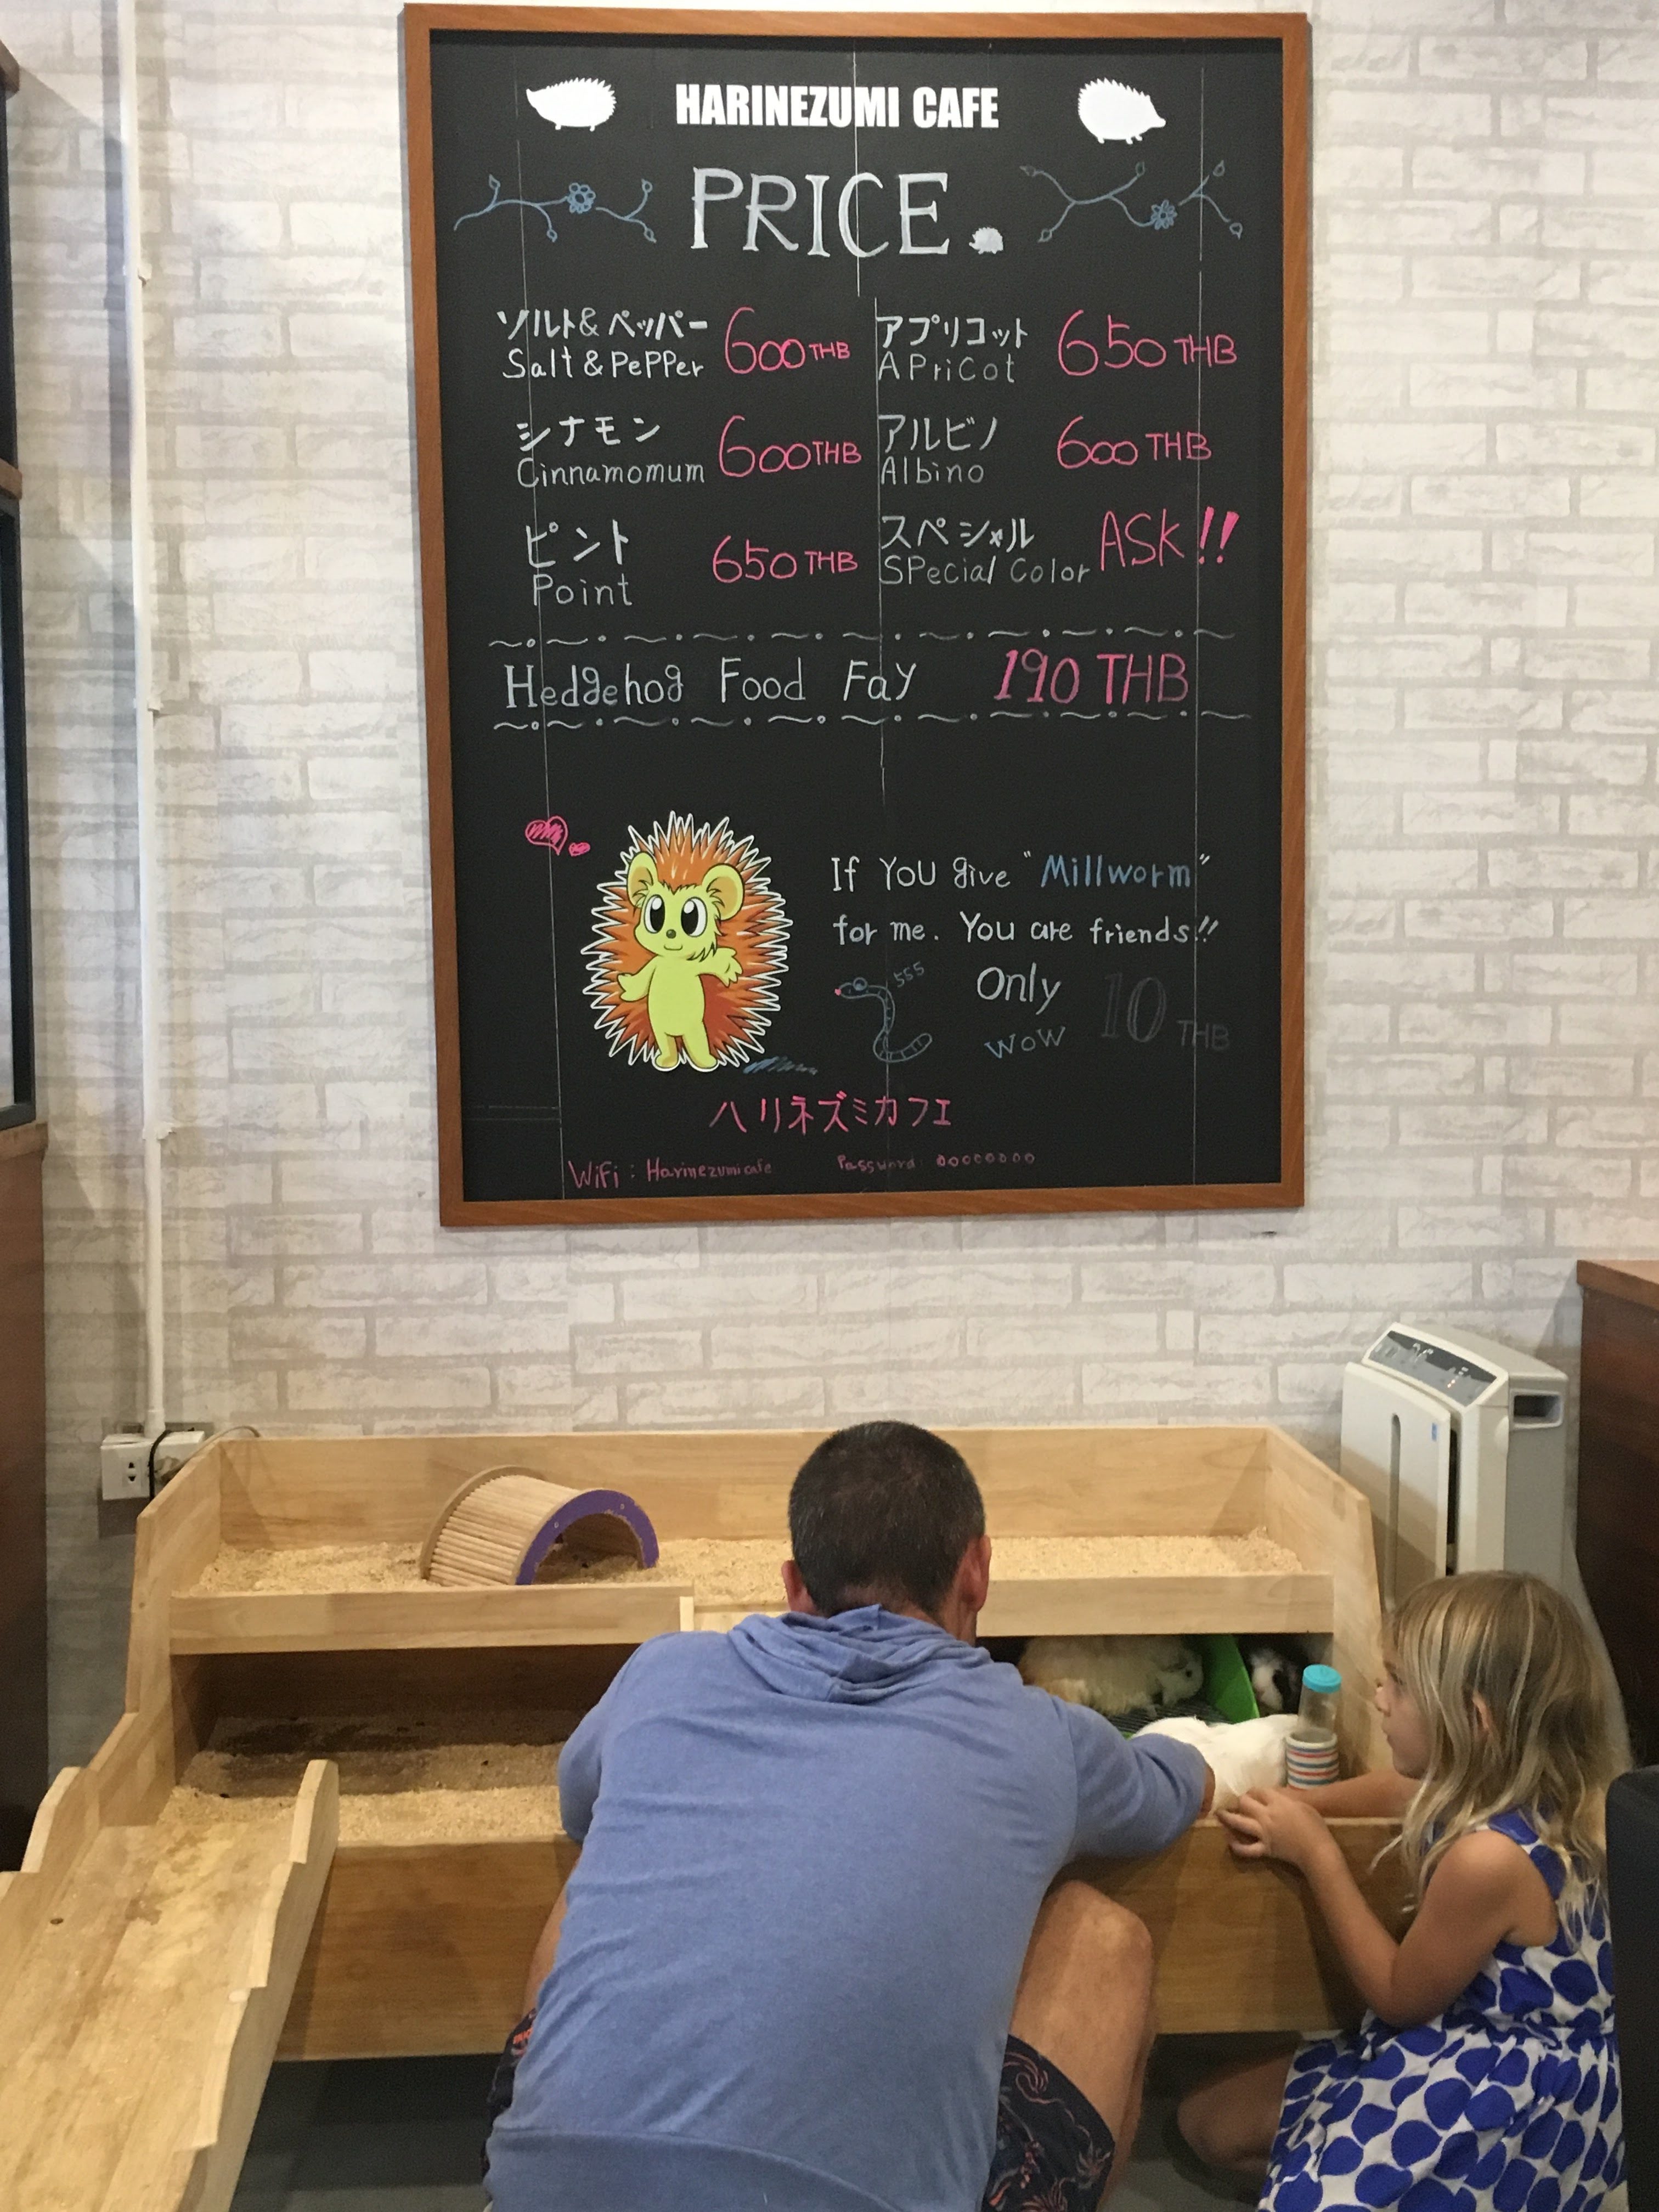 HARINEZUMI CAFE
PRICE.
ソルト&ペッパー 600THB
Salt & PePPer
アプリコット 650THB
APriCot
シナモン 600THB
Cinnamomum
アルビノ 600THB
Albino
ピント 650THB
Point
スペシャル ASK!!
SPecial Color
Hedgehog Food Fay 190 THB
If YOU give "Millworm"
for me. You are friends!!
555
Only 10 THB
WOW
ハリネズミカフェ
WiFi : Harinezumicafe Password: 00000000